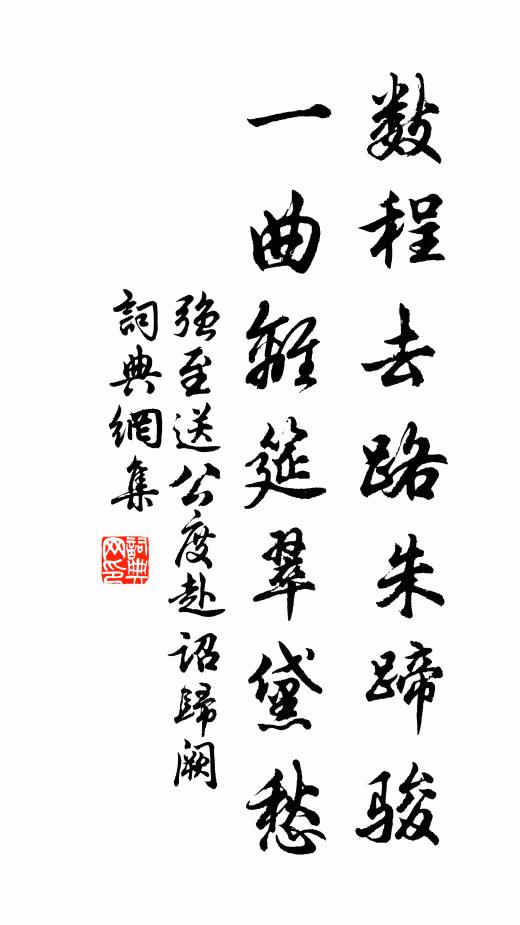 数程去路朱蹄骏
一曲離筵翠黛愁
強至送公度赴詔歸阙
詞典網集
詞典网印